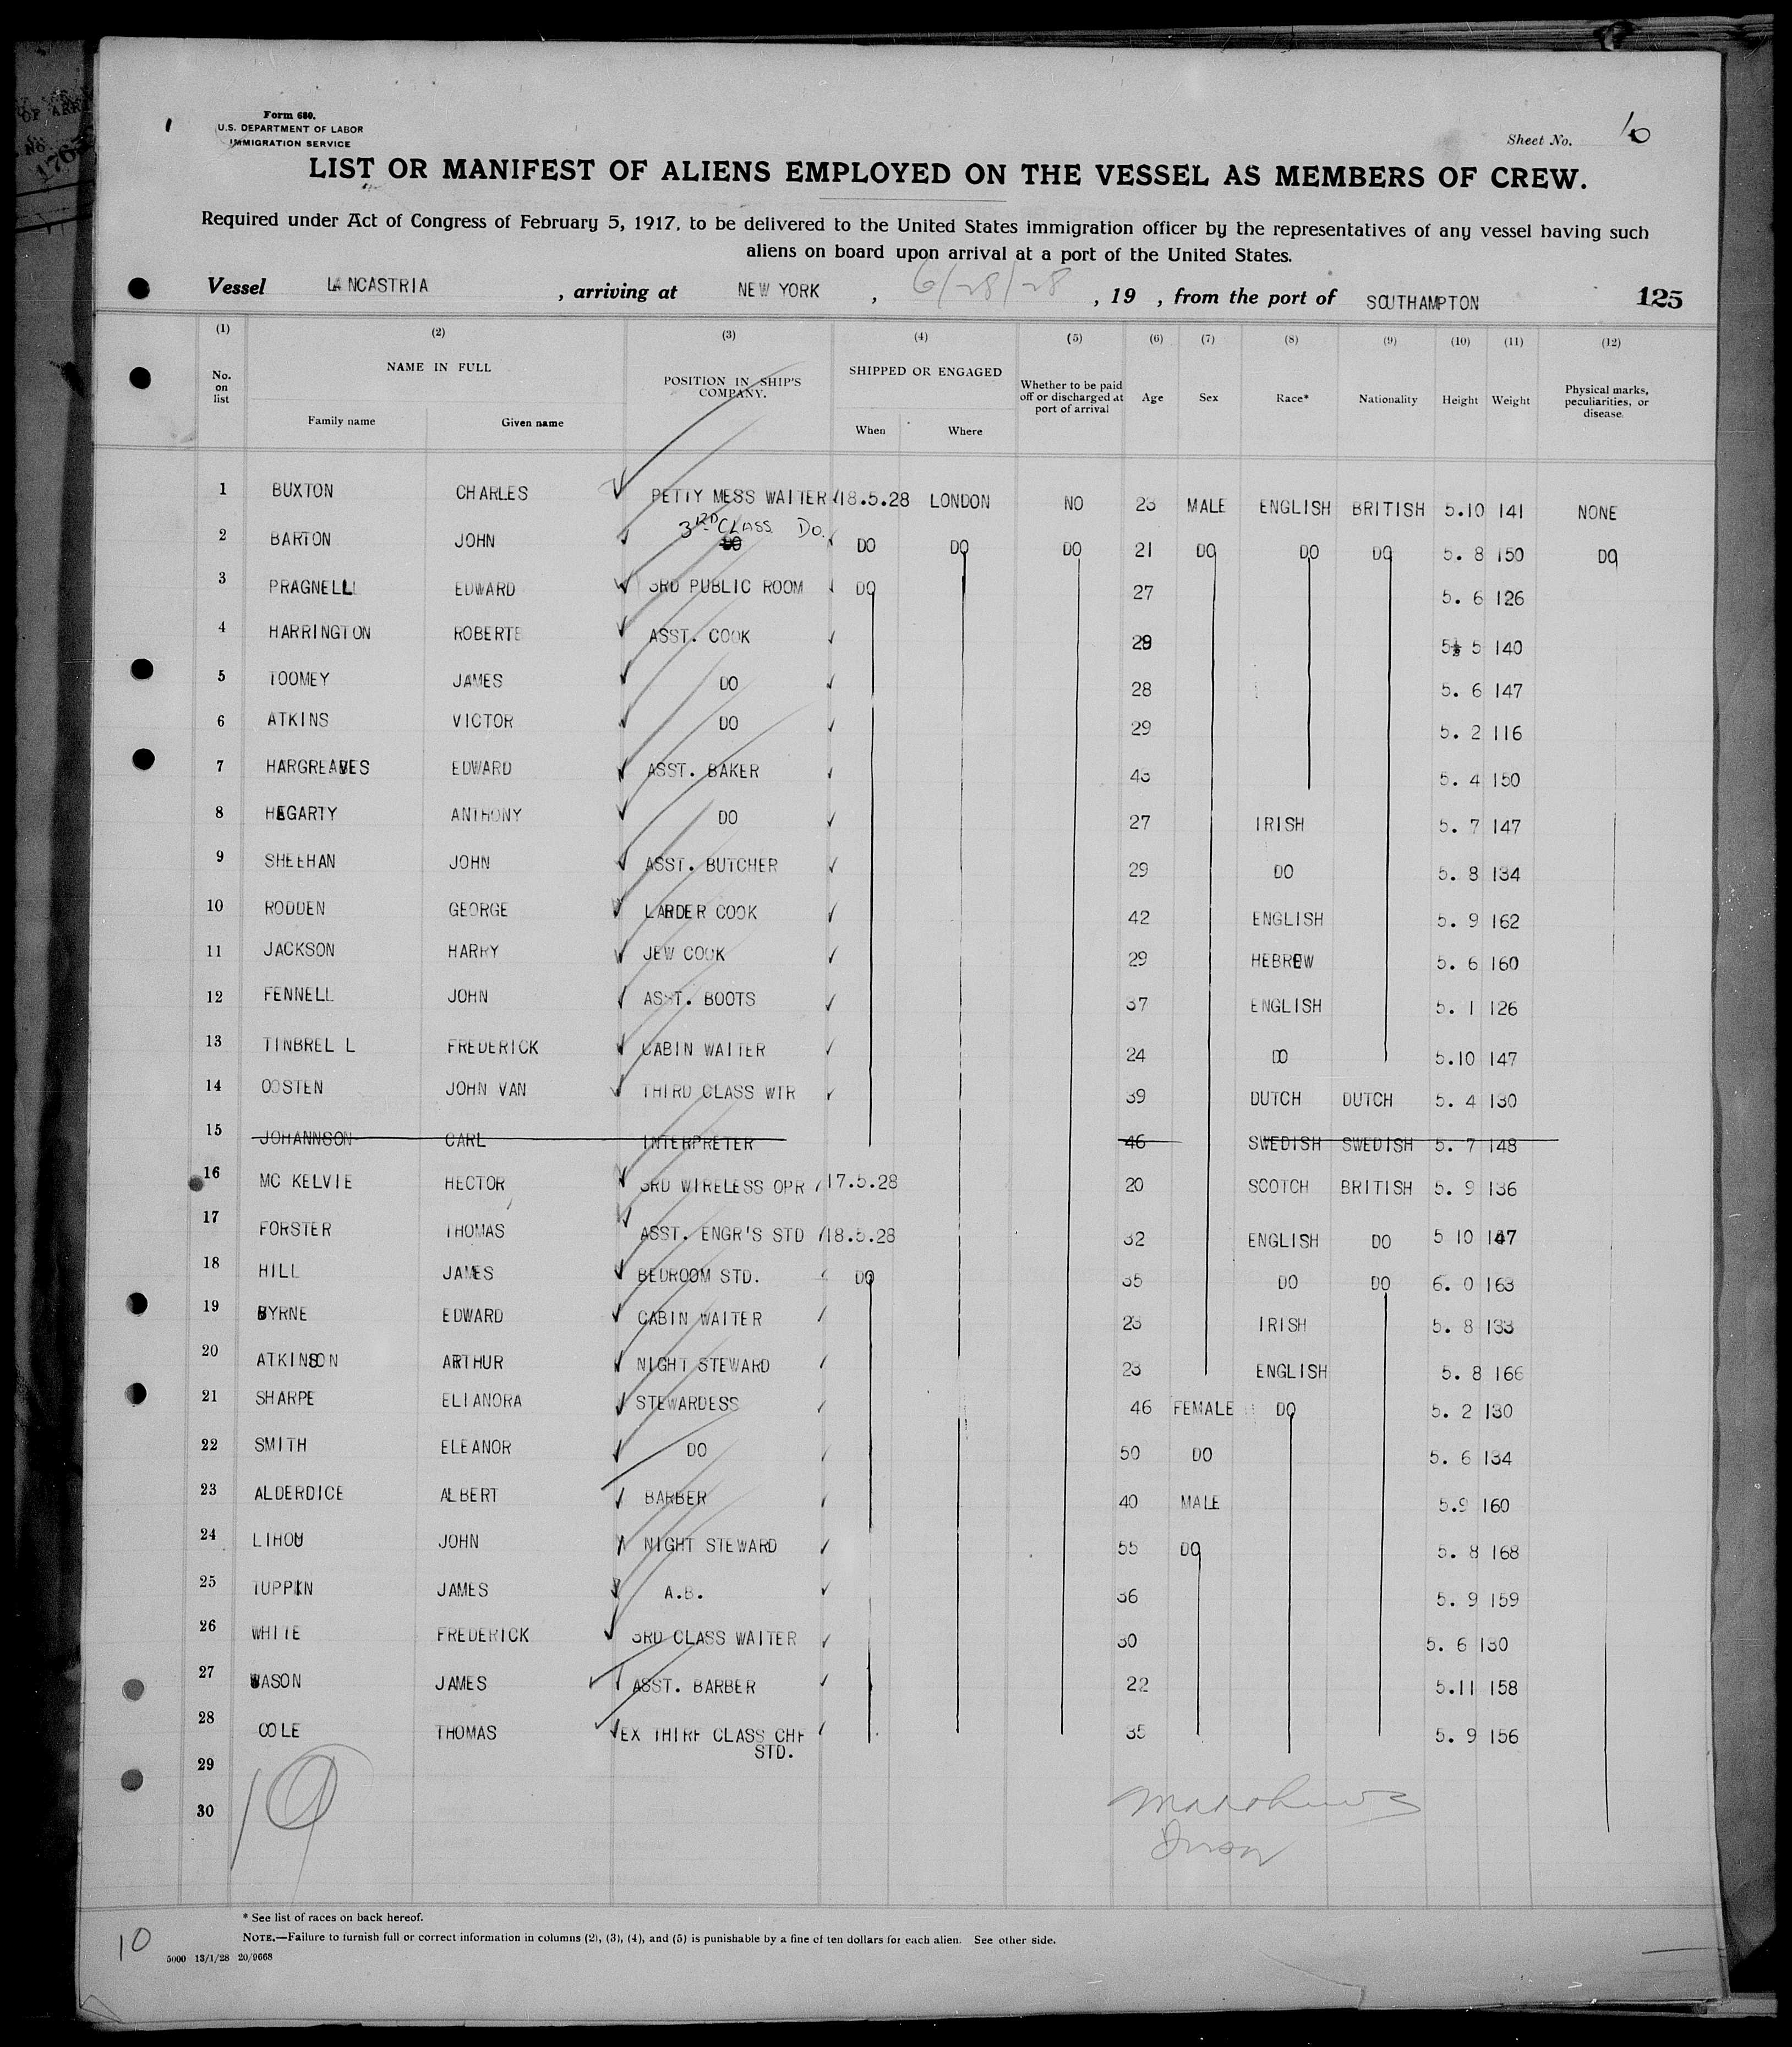 OF ARR
No.
1763
Form 680.
U.S. DEPARTMENT OF LABOR
IMMIGRATION SERVICE
Sheet No. 10
LIST OR MANIFEST OF ALIENS EMPLOYED ON THE VESSEL AS MEMBERS OF CREW.
Required under Act of Congress of February 5, 1917, to be delivered to the United States immigration officer by the representatives of any vessel having such
aliens on board upon arrival at a port of the United States.
Vessel LANCASTRIA , arriving at NEW YORK , 6/28/28 , 19 , from the port of SOUTHAMPTON 125
(1) (2) (3) (4) (5) (6) (7) (8) (9) (10) (11) (12)
No. on list NAME IN FULL POSITION IN SHIP'S COMPANY. SHIPPED OR ENGAGED Whether to be paid off or discharged at port of arrival Age Sex Race* Nationality Height Weight Physical marks, peculiarities, or disease.
Family name Given name When Where
1 BUXTON CHARLES PETTY MESS WAITER 18.5.28 LONDON NO 23 MALE ENGLISH BRITISH 5.10 141 NONE
3RD CLASS DO.
2 BARTON JOHN DO DO DO DO 21 DO DO DO 5. 8 150 DO
3 PRAGNELL EDWARD 3RD PUBLIC ROOM DO 27 5. 6 126
4 HARRINGTON ROBERT ASST. COOK 28 5½ 5 140
5 TOOMEY JAMES DO 28 5. 6 147
6 ATKINS VICTOR DO 29 5. 2 116
7 HARGREAVES EDWARD ASST. BAKER 43 5. 4 150
8 HEGARTY ANTHONY DO 27 IRISH 5. 7 147
9 SHEEHAN JOHN ASST. BUTCHER 29 DO 5. 8 134
10 RODDEN GEORGE LARDER COOK 42 ENGLISH 5. 9 162
11 JACKSON HARRY JEW COOK 29 HEBREW 5. 6 160
12 FENNELL JOHN ASST. BOOTS 37 ENGLISH 5. 1 126
13 TINBREL L FREDERICK CABIN WAITER 24 DO 5.10 147
14 OOSTEN JOHN VAN THIRD CLASS WTR 39 DUTCH DUTCH 5. 4 130
15 JOHANNSON CARL INTERPRETER 46 SWEDISH SWEDISH 5. 7 148
16 MC KELVIE HECTOR 3RD WIRELESS OPR 17.5.28 20 SCOTCH BRITISH 5. 9 136
17 FORSTER THOMAS ASST. ENGR'S STD 18.5.28 32 ENGLISH DO 5 10 147
18 HILL JAMES BEDROOM STD. DO 35 DO DO 6. 0 163
19 BYRNE EDWARD CABIN WAITER 23 IRISH 5. 8 133
20 ATKINSON ARTHUR NIGHT STEWARD 23 ENGLISH 5. 8 166
21 SHARPE ELIANORA STEWARDESS 46 FEMALE DO 5. 2 130
22 SMITH ELEANOR DO 50 DO 5. 6 134
23 ALDERDICE ALBERT BARBER 40 MALE 5.9 160
24 LIHOU JOHN NIGHT STEWARD 55 DO 5. 8 168
25 TUPPIN JAMES A.B. 36 5. 9 159
26 WHITE FREDERICK 3RD CLASS WAITER 30 5. 6 130
27 WASON JAMES ASST. BARBER 22 5.11 158
28 COLE THOMAS EX THIRF CLASS CHF 35 5. 9 156
STD.
29
30
* See list of races on back hereof.
NOTE.—Failure to furnish full or correct information in columns (2), (3), (4), and (5) is punishable by a fine of ten dollars for each alien. See other side.
10
5000 13/1/28 20/9668